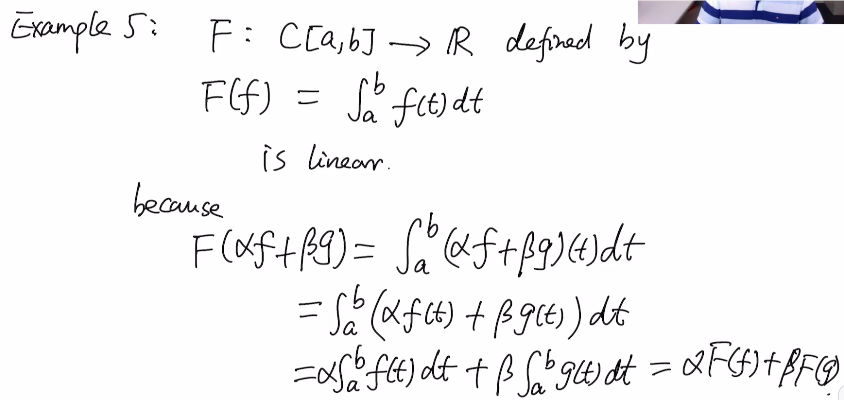 Example 5: F: C[a,b] → ℝ defined by
F(f) = ∫_a^b f(t)dt
is linear.
because
F(αf+βg) = ∫_a^b (αf+βg)(t)dt
= ∫_a^b (αf(t) + βg(t)) dt
= α∫_a^b f(t)dt + β∫_a^b g(t)dt = αF(f)+βF(g)